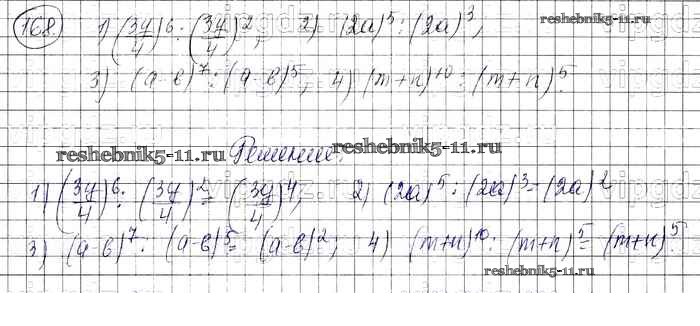 168. 1) (3y/4)^6 : (3y/4)^2; 2) (2a)^5 : (2a)^3;
3) (a-в)^7 : (a-в)^5; 4) (m+n)^10 : (m+n)^5.
reshebnik5-11.ru Решение. reshebnik5-11.ru
1) (3y/4)^6 : (3y/4)^2 = (3y/4)^4; 2) (2a)^5 : (2a)^3 = (2a)^2
3) (a-в)^7 : (a-в)^5 = (a-в)^2; 4) (m+n)^10 : (m+n)^5 = (m+n)^5
reshebnik5-11.ru